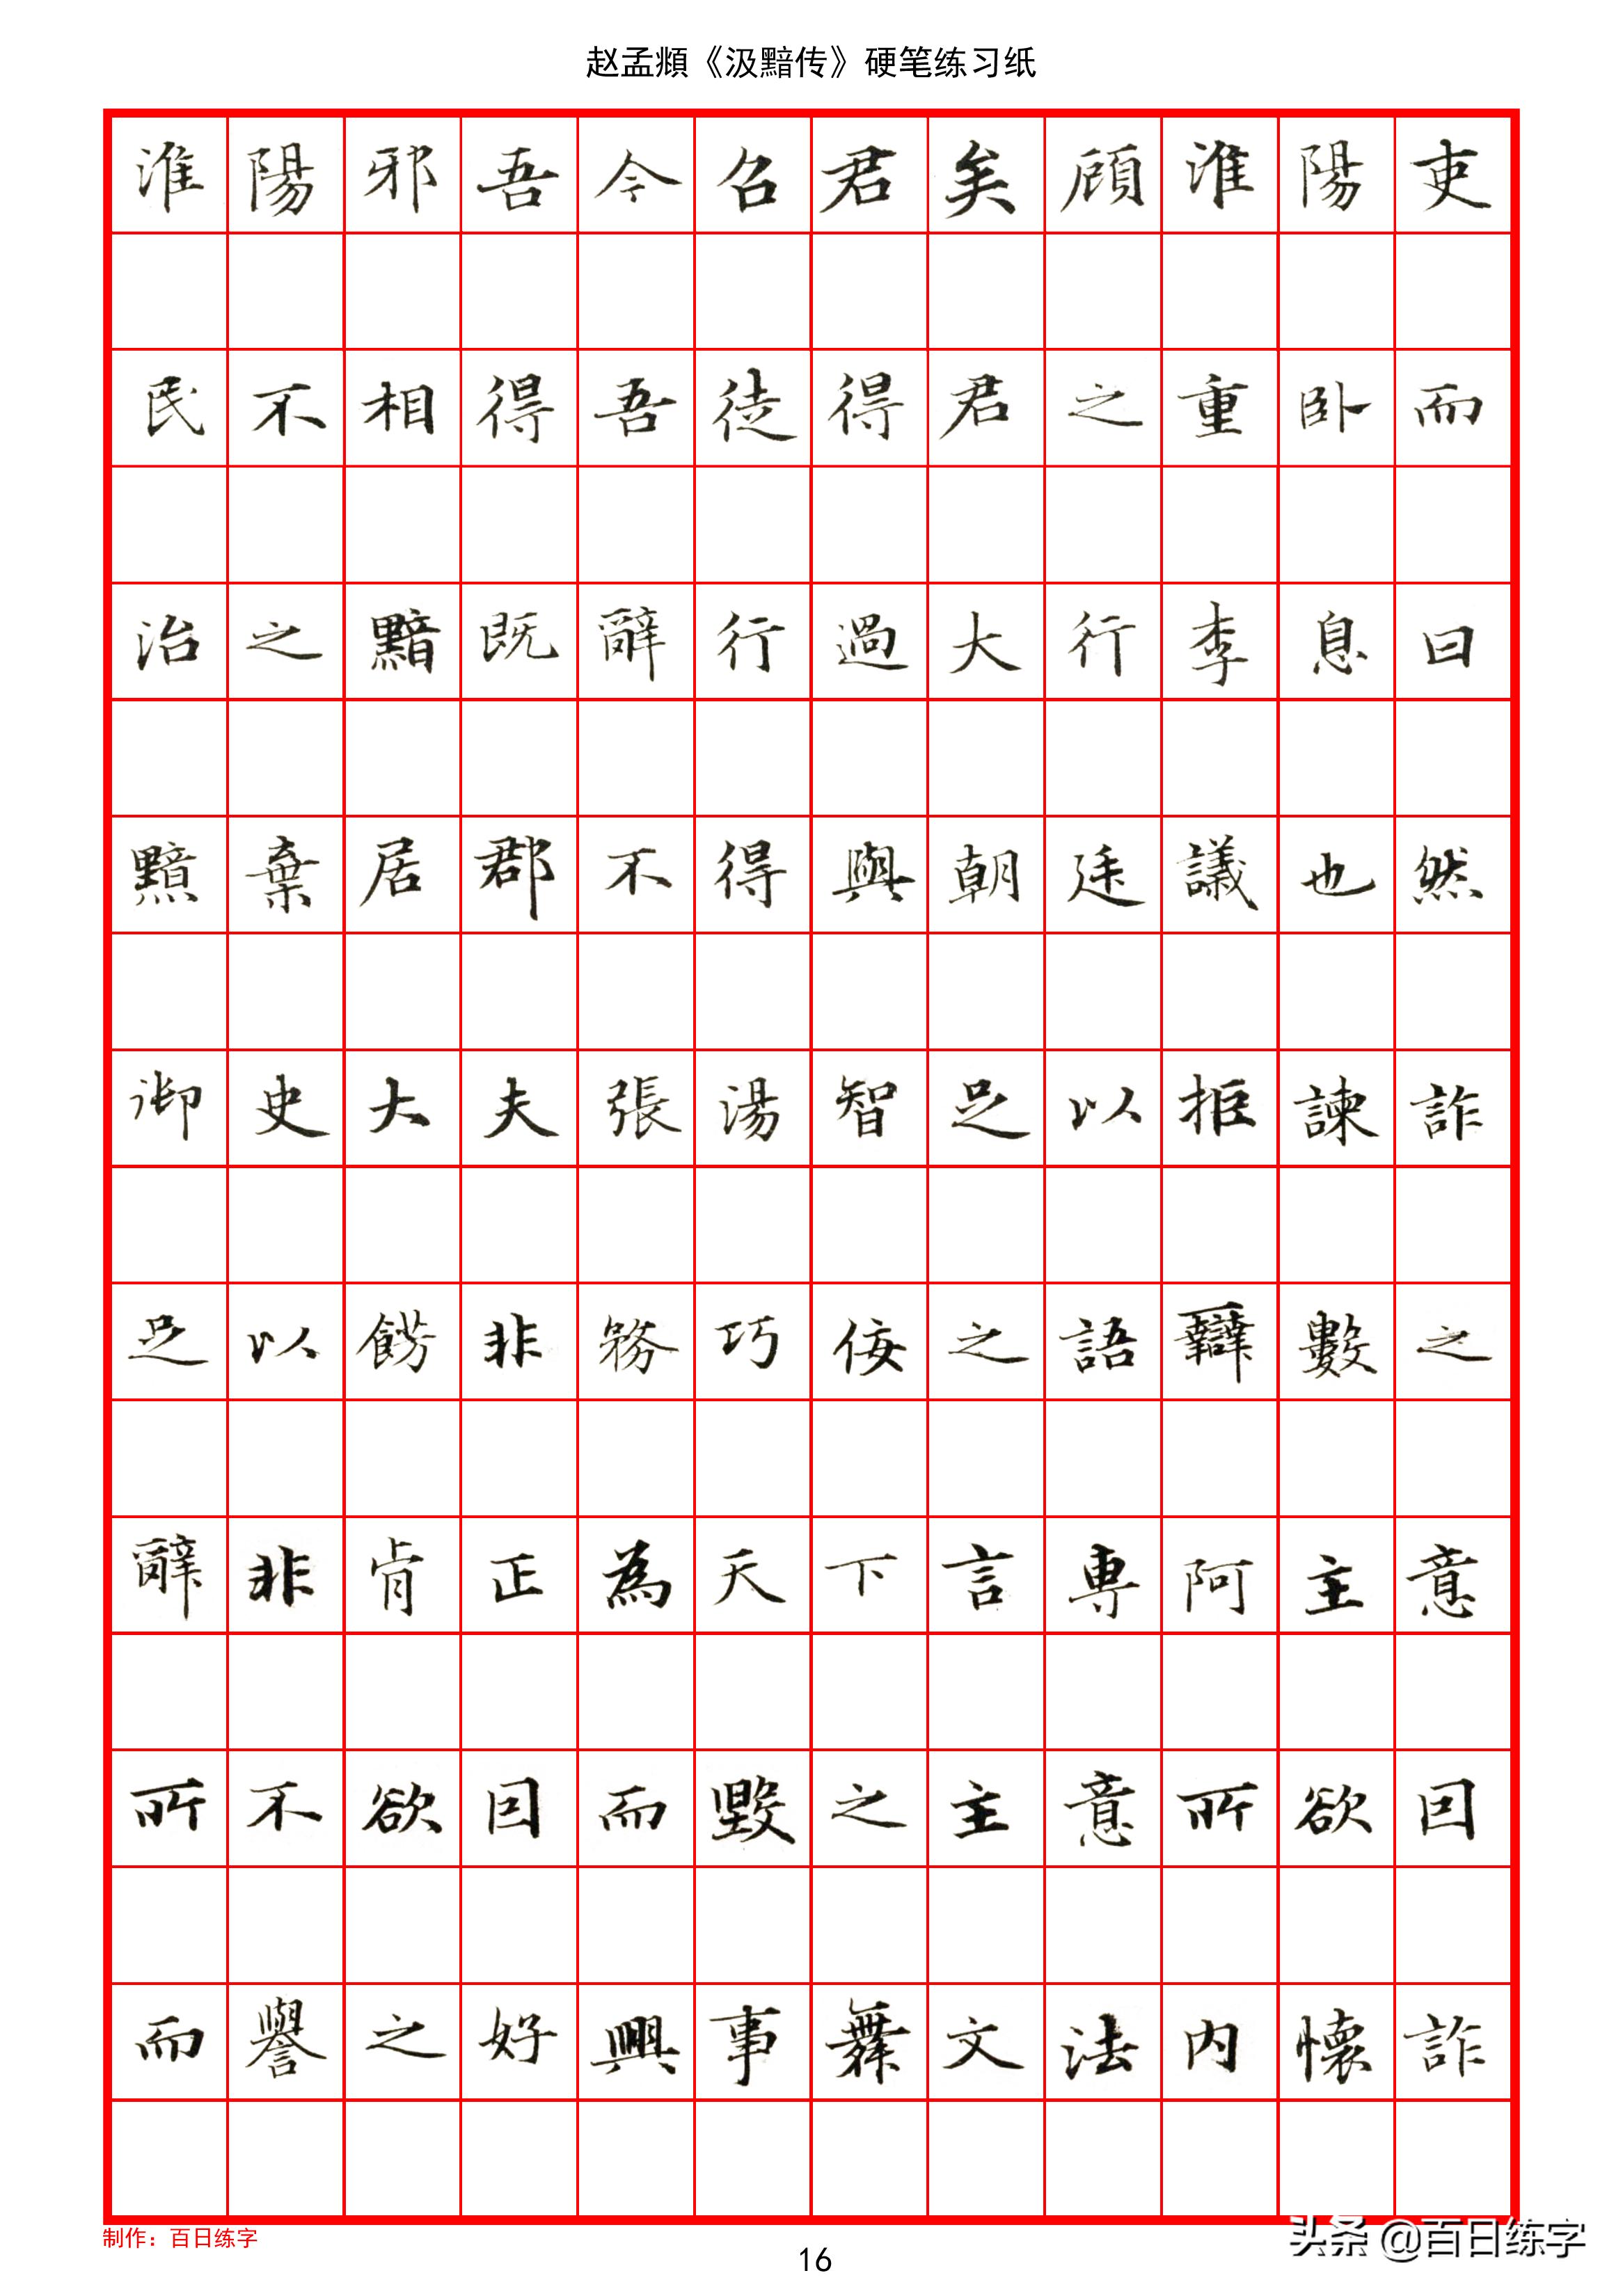 赵孟頫《汲黯传》硬笔练习纸
淮陽邪吾今召君矣顧淮陽吏
民不相得吾徒得君之重卧而
治之黯既辭行過大行李息曰
黯棄居郡不得與朝廷議也然
御史大夫張湯智足以拒諫詐
足以餝非務巧佞之語辯數之
辭非肯正為天下言専阿主意
所不欲因而毀之主意所欲因
而譽之好興事舞文法内懐詐
制作：百日练字
16
头条 @百日练字